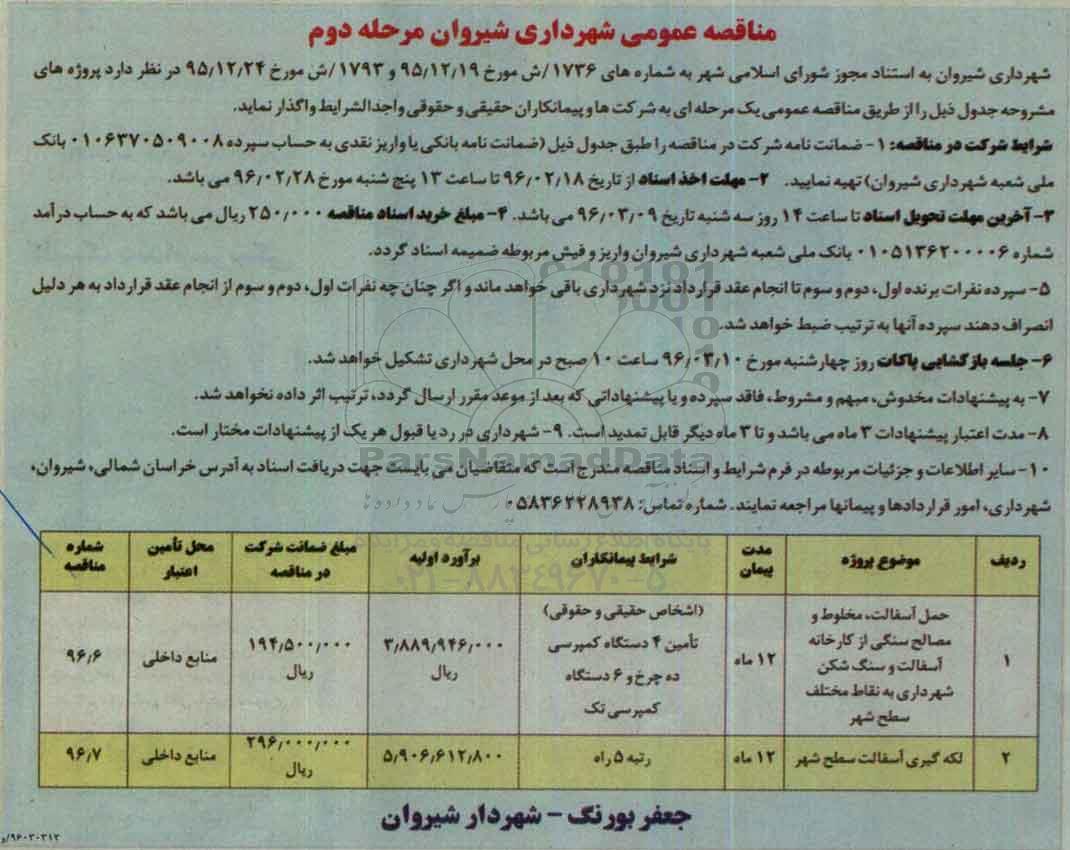 مناقصه عمومی شهرداری شیروان مرحله دوم
شهرداری شیروان به استناد مجوز شورای اسلامی شهر به شماره های ۱۷۳۶/ش مورخ ۹۵٫۱۲٫۱۹ و ۱۷۹۳/ش مورخ ۹۵٫۱۲٫۲۴ در نظر دارد پروژه های
مشروحه جدول ذیل را از طریق مناقصه عمومی یک مرحله ای به شرکت ها و پیمانکاران حقیقی و حقوقی واجد الشرایط واگذار نماید.
شرایط شرکت در مناقصه: ۱- ضمانت نامه شرکت در مناقصه را طبق جدول ذیل (ضمانت نامه بانکی یا واریز نقدی به حساب سپرده ۰۱۰۶۳۷۰۵۰۹۰۰۸ بانک
ملی شعبه شهرداری شیروان) تهیه نمایید. ۲- مهلت اخذ اسناد از تاریخ ۹۶٫۰۲٫۱۸ تا ساعت ۱۳ پنج شنبه مورخ ۹۶٫۰۲٫۲۸ می باشد.
۳- آخرین مهلت تحویل اسناد تا ساعت ۱۴ روز سه شنبه تاریخ ۹۶٫۰۳٫۰۹ می باشد. ۴- مبلغ خرید اسناد مناقصه ۲۵۰٫۰۰۰ ریال می باشد که به حساب درآمد
شماره ۰۱۰۵۱۳۶۲۰۰۰۰۶ بانک ملی شعبه شهرداری شیروان واریز و فیش مربوطه ضمیمه اسناد گردد.
۵- سپرده نفرات برنده اول، دوم و سوم تا انجام عقد قرارداد نزد شهرداری باقی خواهد ماند و اگر چنان چه نفرات اول، دوم و سوم از انجام عقد قرارداد به هر دلیل
انصراف دهند سپرده آنها به ترتیب ضبط خواهد شد.
۶- جلسه بازگشایی پاکات روز چهارشنبه مورخ ۹۶٫۰۳٫۱۰ ساعت ۱۰ صبح در محل شهرداری تشکیل خواهد شد.
۷- به پیشنهادات مخدوش، مبهم و مشروط، فاقد سپرده و یا پیشنهاداتی که بعد از موعد مقرر ارسال گردد، ترتیب اثر داده نخواهد شد.
۸- مدت اعتبار پیشنهادات ۳ ماه می باشد و تا ۳ ماه دیگر قابل تمدید است. ۹- شهرداری در رد یا قبول هر یک از پیشنهادات مختار است.
ParsNamadData
۱۰- سایر اطلاعات و جزئیات مربوطه در فرم شرایط و اسناد مناقصه مندرج است که متقاضیان می بایست جهت دریافت اسناد به آدرس خراسان شمالی، شیروان،
شهرداری، امور قراردادها و پیمانها مراجعه نمایند. شماره تماس: ۰۵۸۳۶۲۲۸۹۳۸
پایگاه اطلاع رسانی مناقصه و مزایده
۰۲۱-۸۸۳۴۹۶۷۰-۵
ردیف موضوع پروژه مدت پیمان شرایط پیمانکاران برآورد اولیه مبلغ ضمانت شرکت در مناقصه محل تأمین اعتبار شماره مناقصه
۱ حمل آسفالت، مخلوط و مصالح سنگی از کارخانه آسفالت و سنگ شکن شهرداری به نقاط مختلف سطح شهر ۱۲ ماه (اشخاص حقیقی و حقوقی) تأمین ۴ دستگاه کمپرسی ده چرخ و ۶ دستگاه کمپرسی تک ۳٫۸۸۹٫۹۴۶٫۰۰۰ ریال ۱۹۴٫۵۰۰٫۰۰۰ ریال منابع داخلی ۹۶٫۶
۲ لکه گیری آسفالت سطح شهر ۱۲ ماه رتبه ۵ راه ۵٫۹۰۶٫۶۱۲٫۸۰۰ ۲۹۶٫۰۰۰٫۰۰۰ ریال منابع داخلی ۹۶٫۷
جعفر بورنگ - شهردار شیروان